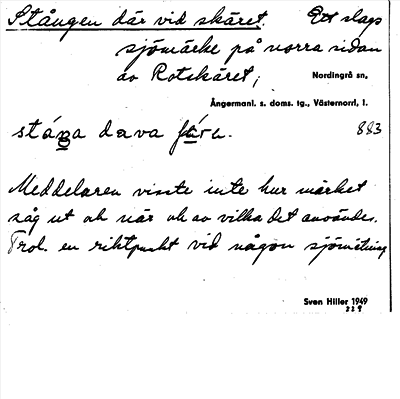 Stången där vid skäret. Ett slags
sjömärke på norra sidan
av Rotskäret,
Nordingrå sn,
Ångermanl. s. doms. tg., Västernorrl. l.
883
Meddelaren visste inte hur märket
såg ut och när och av vilka det användes.
Trol. en riktpunkt vid någon sjömätning
Sven Hiller 1949